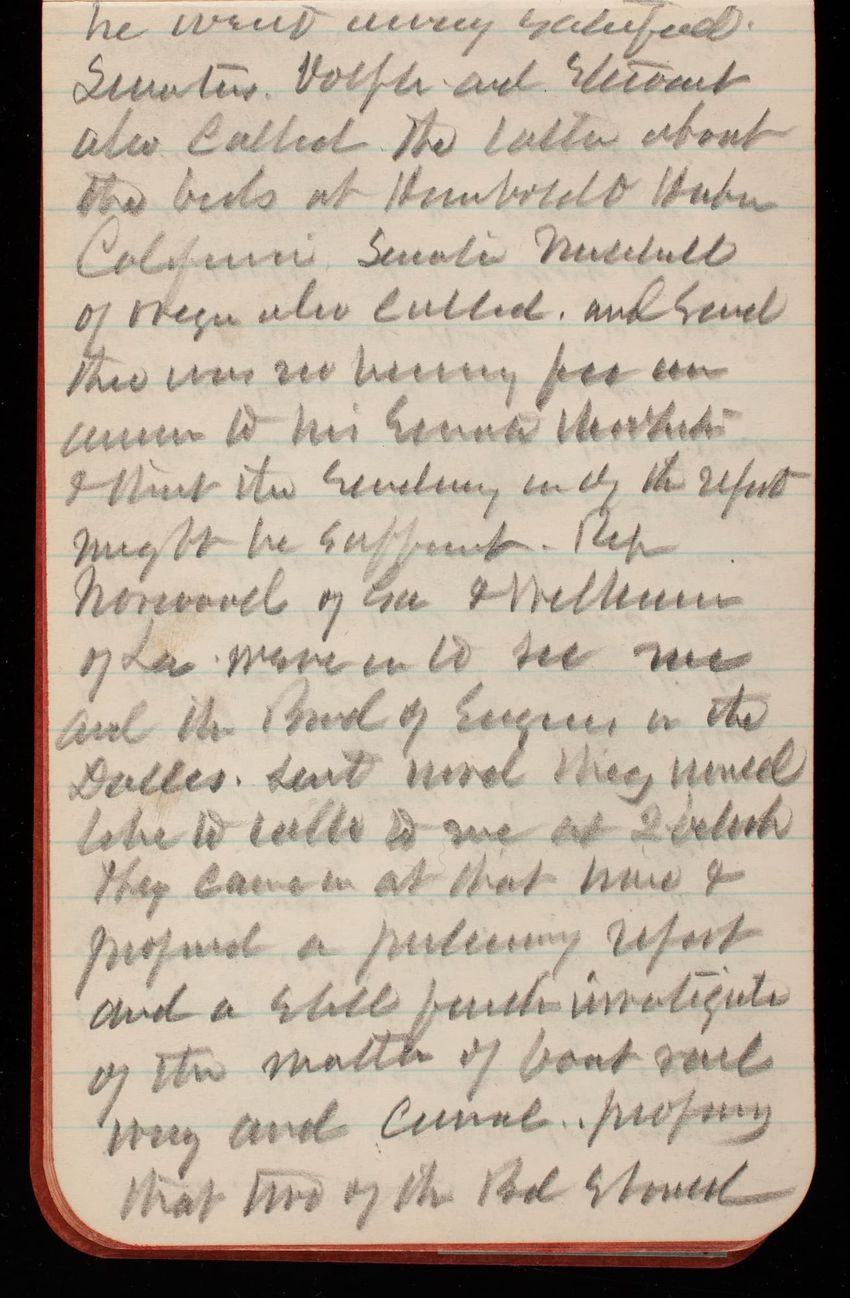 he went away satisfied.
Senators. Dolph and Stewart
also called the latter about
the beds at Humboldt Harbor
California Senator Mitchell
of Oregon also called. and said
there was no hurry for an
answer to his Senate
& that the Secretary end of the report
might be sufficient. Rep
Norwood of Ga & Wilkinson
of La. were in to see me
and the Board of Engineers on the
Dalles. sent word they would
like to talk to me at 2 oclock
they came in at that time &
proposed a preliminary report
and a still further investigate
of the matter of boat rail
way and Canal.. proposing
that two of the Bd should